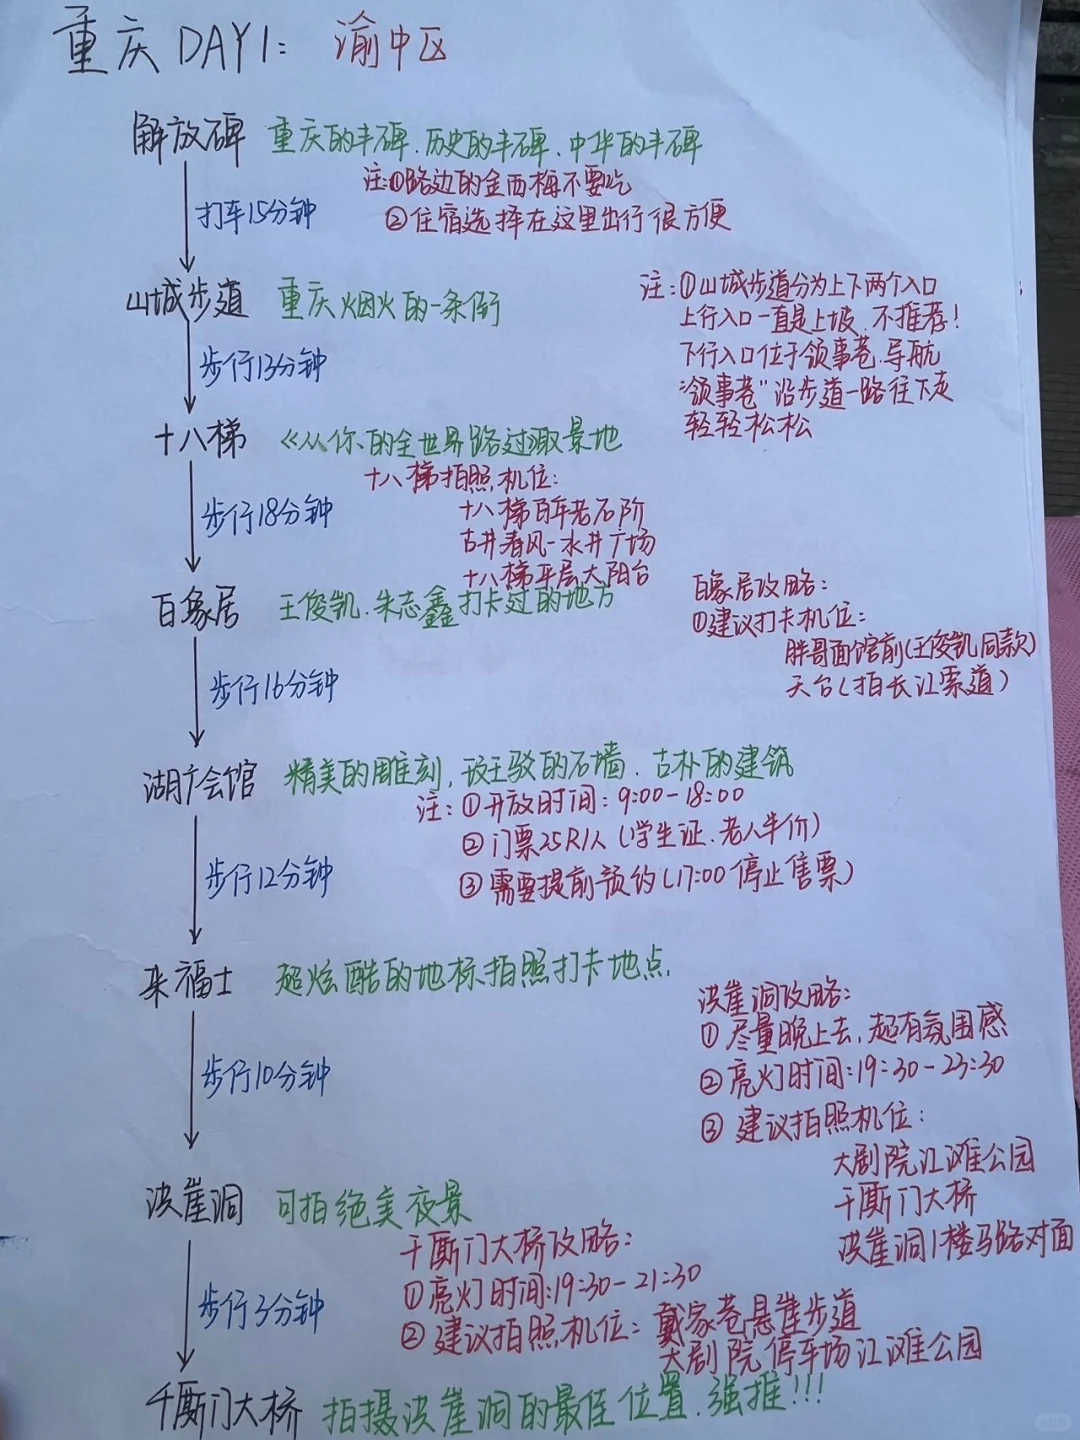 重庆DAY1: 渝中区
解放碑 重庆的丰碑、历史的丰碑、中华的丰碑
注:①路边的金西梅不要吃
打车15分钟
②住宿选择在这里出行很方便
山城步道 重庆烟火的一条街
注:①山城步道分为上下两个入口
上行入口一直是上坡、不推荐!
下行入口位于领事巷、导航
"领事巷"沿步道一路往下走
轻轻松松
步行13分钟
十八梯 《从你的全世界路过》取景地
十八梯拍照机位:
十八梯百年老石阶
古井春风-水井广场
十八梯平层大阳台
步行18分钟
白象居 王俊凯、朱志鑫打卡过的地方
白象居攻略:
①建议打卡机位:
胖哥面馆前(王俊凯同款)
天台(拍长江索道)
步行16分钟
湖广会馆 精美的雕刻,斑驳的石墙、古朴的建筑
注:①开放时间:9:00-18:00
②门票25R/人(学生证、老人半价)
③需要提前预约(17:00停止售票)
步行12分钟
来福士 超炫酷的地标拍照打卡地点
步行10分钟
洪崖洞攻略:
①尽量晚上去,超有氛围感
②亮灯时间:19:30-23:30
③建议拍照机位:
大剧院江滩公园
千厮门大桥
洪崖洞1楼马路对面
洪崖洞 可拍绝美夜景
千厮门大桥攻略:
①亮灯时间:19:30-21:30
②建议拍照机位:戴家巷悬崖步道
大剧院停车场江滩公园
步行3分钟
千厮门大桥 拍摄洪崖洞的最佳位置、强推!!!